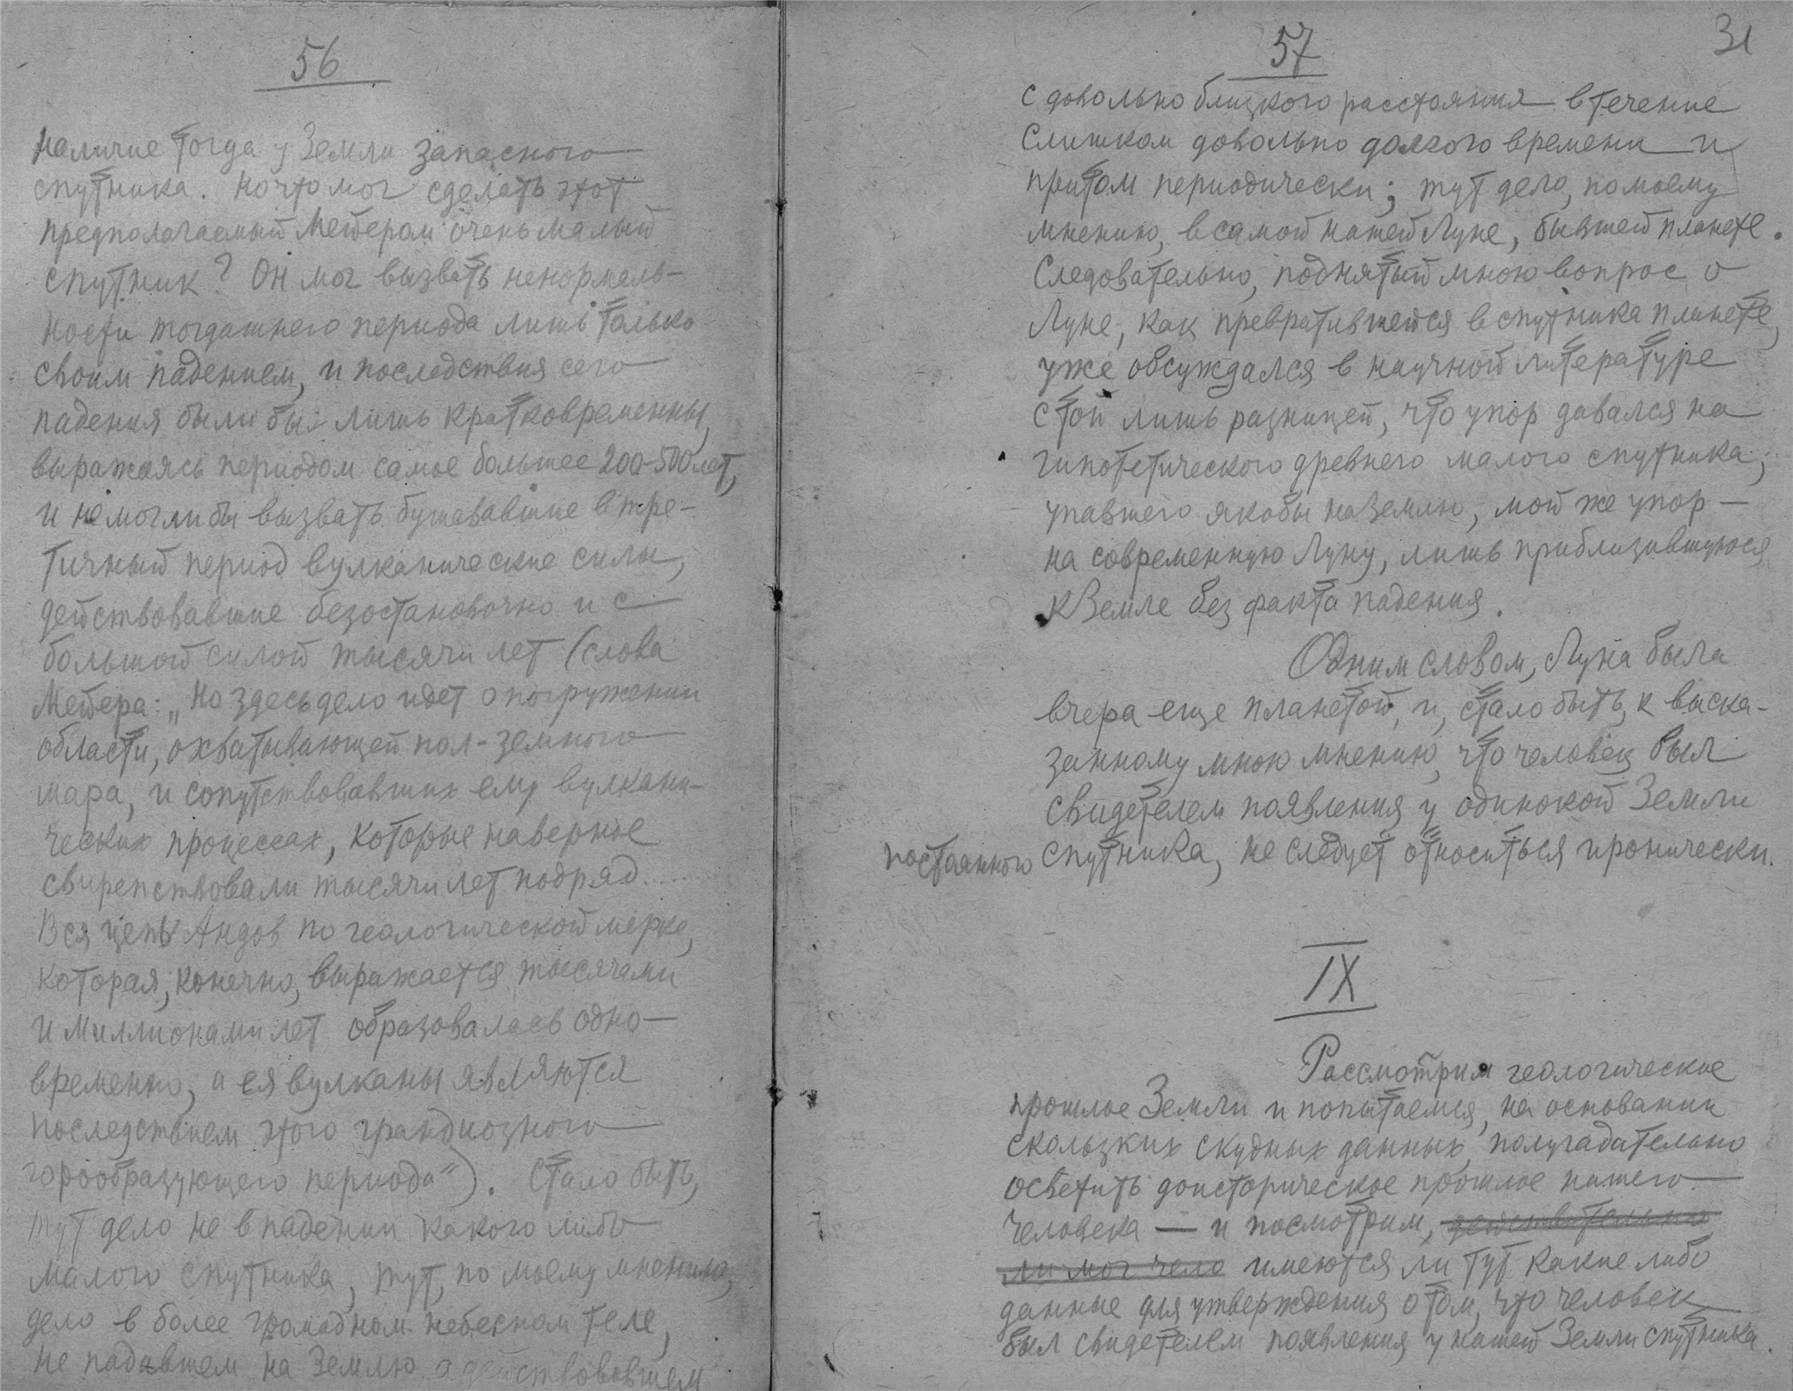 56
наличие тогда у Земли запасного
спутника. Но что мог сделать этот
предполагаемый Мейером очень малый
спутник? Он мог вызвать ненормаль-
ности тогдашнего периода лишь только
своим падением, и последствия сего
падения были бы лишь кратковременны,
выражаясь периодом самое большее 200-500 лет,
и не могли бы вызвать бушевавшие в тре-
тичный период вулканические силы,
действовавшие безостановочно и с
большой силой тысячи лет (слова
Мейера: „Но здесь дело идет о погружении
области, охватывающей пол-земного
шара, и сопутствовавших ему вулкани-
ческих процессах, которые наверное
свирепствовали тысячи лет подряд.....
Вся цепь Андов по геологической мерке,
которая, конечно, выражается тысячами
и миллионами лет образовалась одно-
временно, а ея вулканы являются
последствием этого грандиозного
горообразующего периода“). Стало быть,
тут дело не в падении какого либо
малого спутника, тут, по моему мнению,
дело в более громадном небесном теле,
не падавшем на Землю, а действовавшем
57
31
с довольно близкого расстояния в течение
слишком довольно долгого времени и
притом периодически; тут дело, по моему
мнению, в самой нашей Луне, бывшей планете.
Следовательно, поднятый мною вопрос о
Луне, как превратившейся в спутника планете,
уже обсуждался в научной литературе
с той лишь разницей, что упор давался на
гипотетического древнего малого спутника,
упавшего якобы на Землю, мой же упор —
на современную Луну, лишь приблизившуюся
к Земле без факта падения.
Одним словом, Луна была
вчера еще планетой, и, стало быть, к выска-
занному мною мнению, что человек был
свидетелем появления у одинокой Земли
постоянного спутника, не следует относиться иронически.
IX
Рассмотрим геологическое
прошлое Земли и попытаемся, на основании
скользких скудных данных, полугадательно
осветить доисторическое прошлое нашего
человека — и посмотрим, действительно
ли мог чело имеются ли тут какие либо
данные для утверждения о том, что человек
был свидетелем появления у нашей Земли спутника.